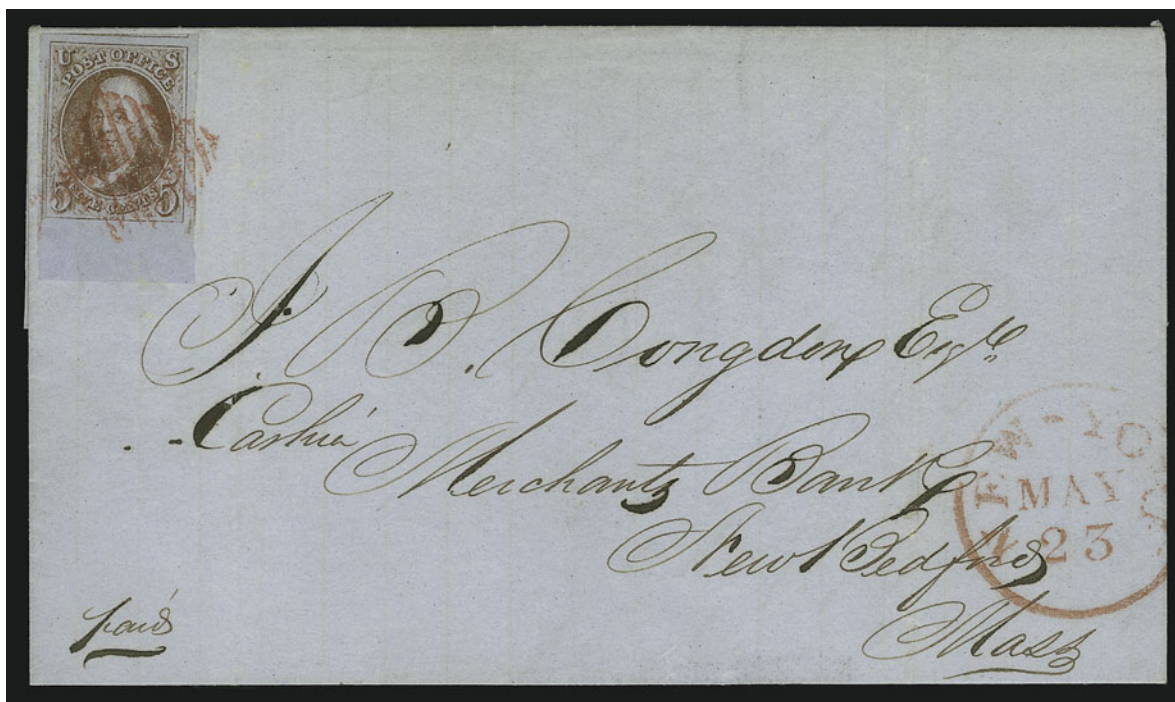 U S
POST OFFICE
FIVE CENTS
5 5
J. B. Congdon Esqre
Cashier
Merchants Bank
New Bedford
Mass
paid
NEW-YORK
MAY
23